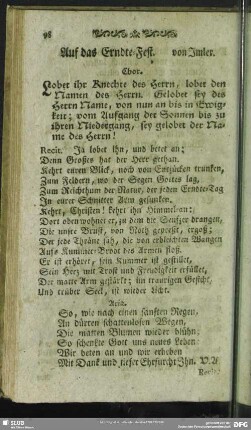 98
Auf das Erndte-Fest. von Imler.
Chor.
Lobet ihr Knechte des Herrn, lobet den
Namen des Herrn. Gelobet sey des
Herrn Name, von nun an bis in Ewig-
keit; vom Aufgang der Sonnen bis zu
ihren Niedergang, sey gelobet der Na-
me des Herrn!
Recit. Ja lobet Ihn, und betet an;
Denn Großes hat der Herr gethan.
Kehrt euren Blick, noch von Entzücken trunken,
Zum Feldern, wo der Segen Gottes lag,
Zum Reichthum der Natur, der jeden Erndte-Tag
In eurer Schnitter Arm gesunken.
Kehrt, Christen! kehrt ihn Himmelan:
Dort oben wohnet er, zu dem die Seufzer drangen,
Die unsre Brust, von Noth gepreßt, ergoß;
Der jede Thräne sah, die von erbleichten Wangen
Aufs Kummer-Brodt des Armen floß.
Er ist erhöret, sein Kummer ist gestillet,
Sein Herz mit Trost und Freudigkeit erfüllet,
Der matte Arm gestärkt; im traurigen Gesicht,
Und trüber Seel, ist wieder Licht.
Aria.
So, wie nach einen sanften Regen,
An dürren schattenlosen Wegen,
Die matten Blumen wieder blühn;
So schenkte Gott uns neues Leben.
Wir beten an und wir erheben
Mit Dank und tiefer Ehrfurcht Ihn. V.A
SLUB
DFG